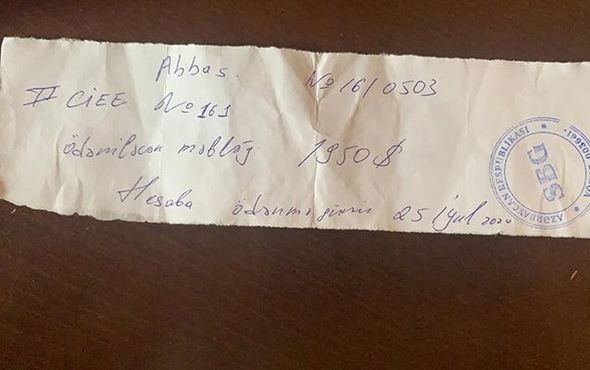 Abbas. № 16/0503
II CiEE № 161
ödəniləcən məbləğ 1950 $
Hesaba ödənmə 25 iyul 2020
AZƏRBAYCAN RESPUBLİKASI
SBG